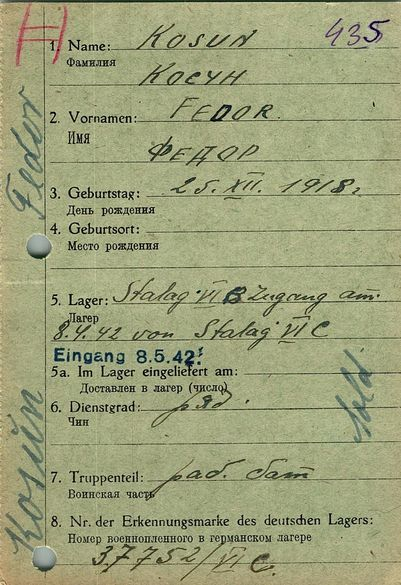 H
435
1. Name: KOSUN
Фамилия
КОСУН
2. Vornamen: FEDOR.
Имя
ФЕДОР
3. Geburtstag: 25. XII. 1918г
День рождения
4. Geburtsort:
Место рождения
5. Lager: Stalag VI B Zugang am
Лагер
8.4.42 von Stalag VI C
Eingang 8.5.42.
5a. Im Lager eingeliefert am:
Доставлен в лагер (число)
6. Dienstgrad: ряд.
Чин
Sold
7. Truppenteil: раб. бат
Воинская часть
8. Nr. der Erkennungsmarke des deutschen Lagers:
Номер военнопленного в германском лагере
37752/VI C.
Kosün Fedor